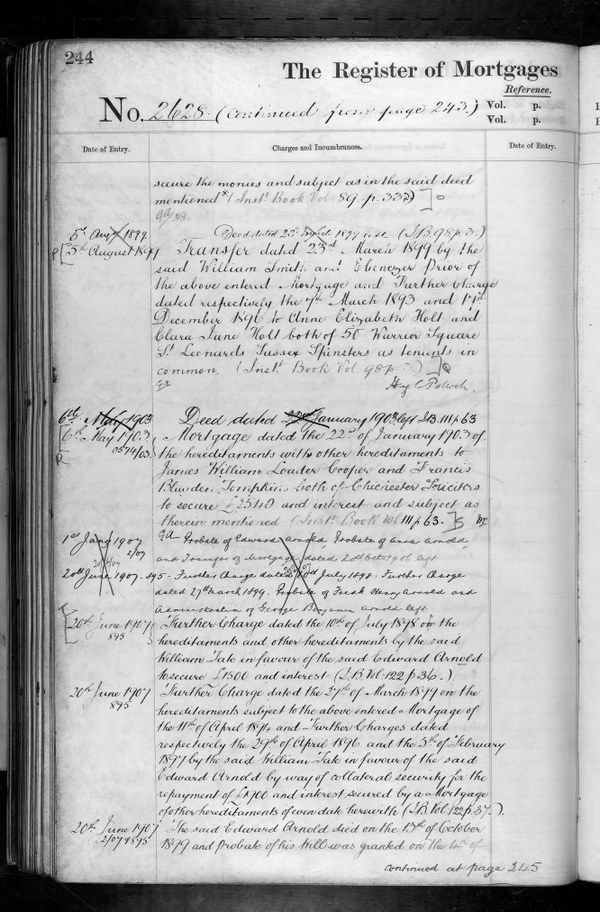 244
The Register of Mortgages
Reference.
No. 2628. (continued from page 243.)
Vol. p.
Vol. p.
Date of Entry.
Charges and Incumbrances.
Date of Entry.
secure the monies and subject as in the said deed
mentioned (Inst. Book Vol. 89. p. 332)
5th Augt 1899.
Deed dated 23rd March 1899 (I.B. 98 p. 3.)
5th August 1899
Transfer dated 23rd March 1899 by the
said William Smith and Ebenezer Prior of
the above entered Mortgage and Further Charge
dated respectively the 7th March 1893 and
December 1896 to Anne Elizabeth Holt and
Clara Jane Holt both of 50 Warrior Square
St. Leonards Sussex Spinsters as tenants in
common. (Inst. Book Vol. 98 p. 3.)
6th May 1903
Deed dated 22nd January 1903 left I.B. 111 p 63
6th May 1903.
Mortgage dated the 22nd of January 1903 of
the hereditaments with other hereditaments to
James William Loader Cooper and Francis
Blunden Tompkins both of Chichester Solicitors
to secure £2540 and interest and subject as
therein mentioned (Inst. Book Vol 111 p 63.
1st Jany 1907
2/07
Probate of Edward Arnold Probate of Arnold,
and Transfer of Mortgage dated 20th Octr 1906 left
20th June 1907. 895.
Further Charge dated 10th July 1898. Further Charge
dated 27th March 1899. Probate of Henry Arnold and
Administration of George Benjamin Arnold left
20th June 1907
895
Further Charge dated the 10th of July 1898 on the
hereditaments and other hereditaments by the said
William Tate in favour of the said Edward Arnold
to secure £1500 and interest (I.B. Vol: 122 p 36.)
20th June 1907
895
Further Charge dated the 27th of March 1899 on the
hereditaments subject to the above entered Mortgage of
the 11th of April 1894 and Further Charges dated
respectively the 29th of April 1896 and the 5th of February
1897 by the said William Tate in favour of the said
Edward Arnold by way of collateral security for the
repayment of £1900 and interest secured by a Mortgage
of other hereditaments of even date herewith (I.B. Vol 122 p. 37.)
20th June 1907
2/07 & 895
The said Edward Arnold died on the 13th of October
1899 and Probate of his Will was granted on the of
continued at page 245